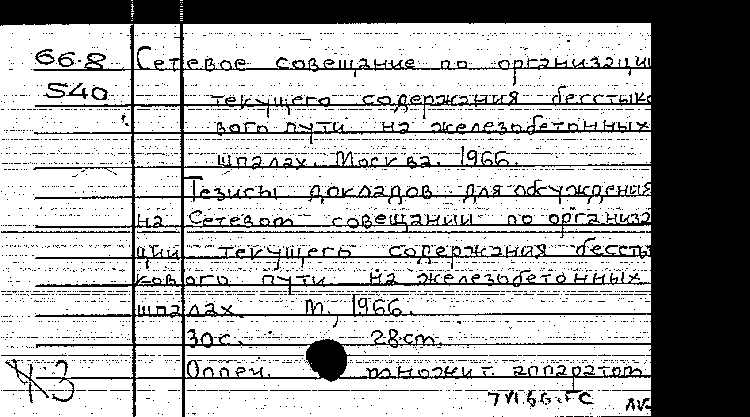 66.8 Сетевое совещание по организации
S40 текущего содержания бесстыко
вого пути на железобетонных
шпалах. Москва. 1966.
Тезисы докладов для обсуждения
на Сетевом совещании по организа
ции текущего содержания бессты
кового пути на железобетонных
шпалах. М., 1966.
30 с. 28 cm.
Отпеч. множит. аппаратом